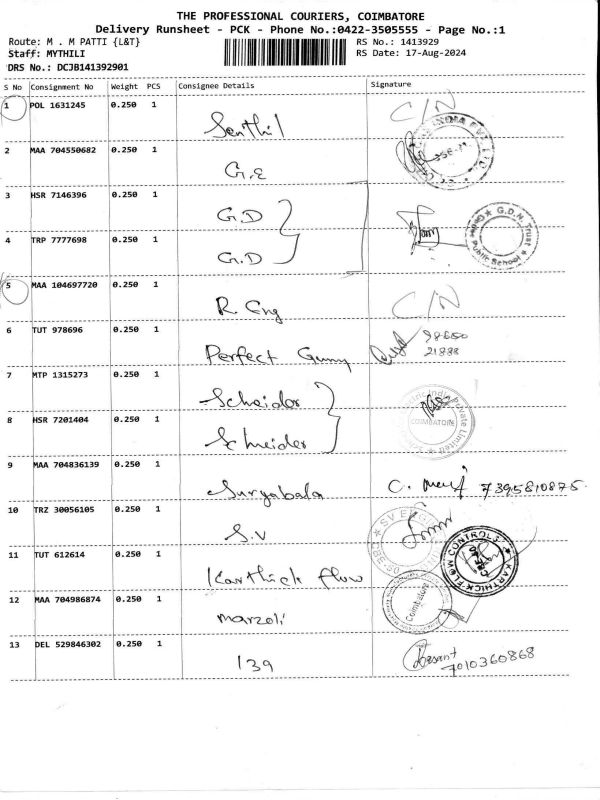 THE PROFESSIONAL COURIERS, COIMBATORE
Delivery Runsheet - PCK - Phone No.:0422-3505555 - Page No.:1
Route: M . M PATTI {L&T} RS No.: 1413929
Staff: MYTHILI RS Date: 17-Aug-2024
DRS No.: DCJB141392901
S No Consignment No Weight PCS Consignee Details Signature
1 POL 1631245 0.250 1 Senthil C/N
2 MAA 704550682 0.250 1 G.E
3 HSR 7146396 0.250 1 G.D
4 TRP 7777698 0.250 1 G.D G.D.N. Trust Public School
5 MAA 104697720 0.250 1 R. Eng C/N
6 TUT 978696 0.250 1 Perfect Gummy 98650
21888
7 MTP 1315273 0.250 1 Scheider
8 HSR 7201404 0.250 1 Schneider COIMBATORE Private Limited
9 MAA 704836139 0.250 1 Suryabala 7395810875
10 TRZ 30056105 0.250 1 S.V
11 TUT 612614 0.250 1 Karthick flow KARTHICK FLOW CONTROLS
12 MAA 704986874 0.250 1 marzoli Coimbatore
13 DEL 529846302 0.250 1 139 7010360868